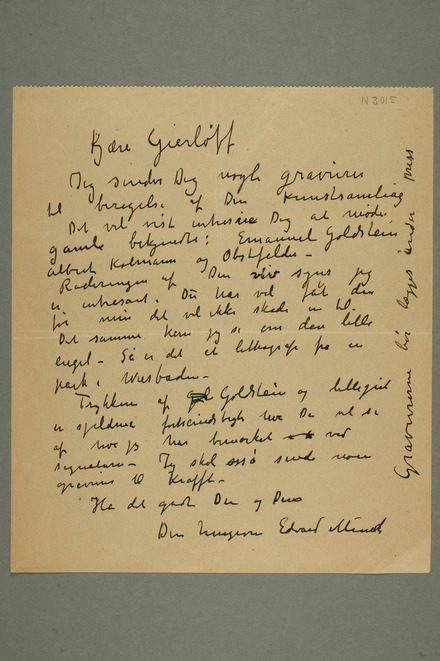 N 3015
Kjære Gierløff
Jeg sender Dig nogle gravurer
til berigelse af Din Kunstsamling
Det vil vist interessere Dig at møde
gamle bekjendte: Emanuel Goldstein
Albert Kolmann og Obstfelder –
Raderingen af Din viv synes jeg
er interesant. Du har vel fåt den
før men det vil ikke skade en til.
Det samme kan jeg si om den lille
engel – Så er det et lithografi fra en
park i Wiesbaden –
Trykkene af Goldstein og
er sjeldne hva Du vil se
af hva jeg har bemærket ved
signaturen – Jeg skal også sende nogen
gravurer til Krafft –
Ha det godt Du og Dine
Din hengivne Edvard Munch
Gravurerne bør lægges under press